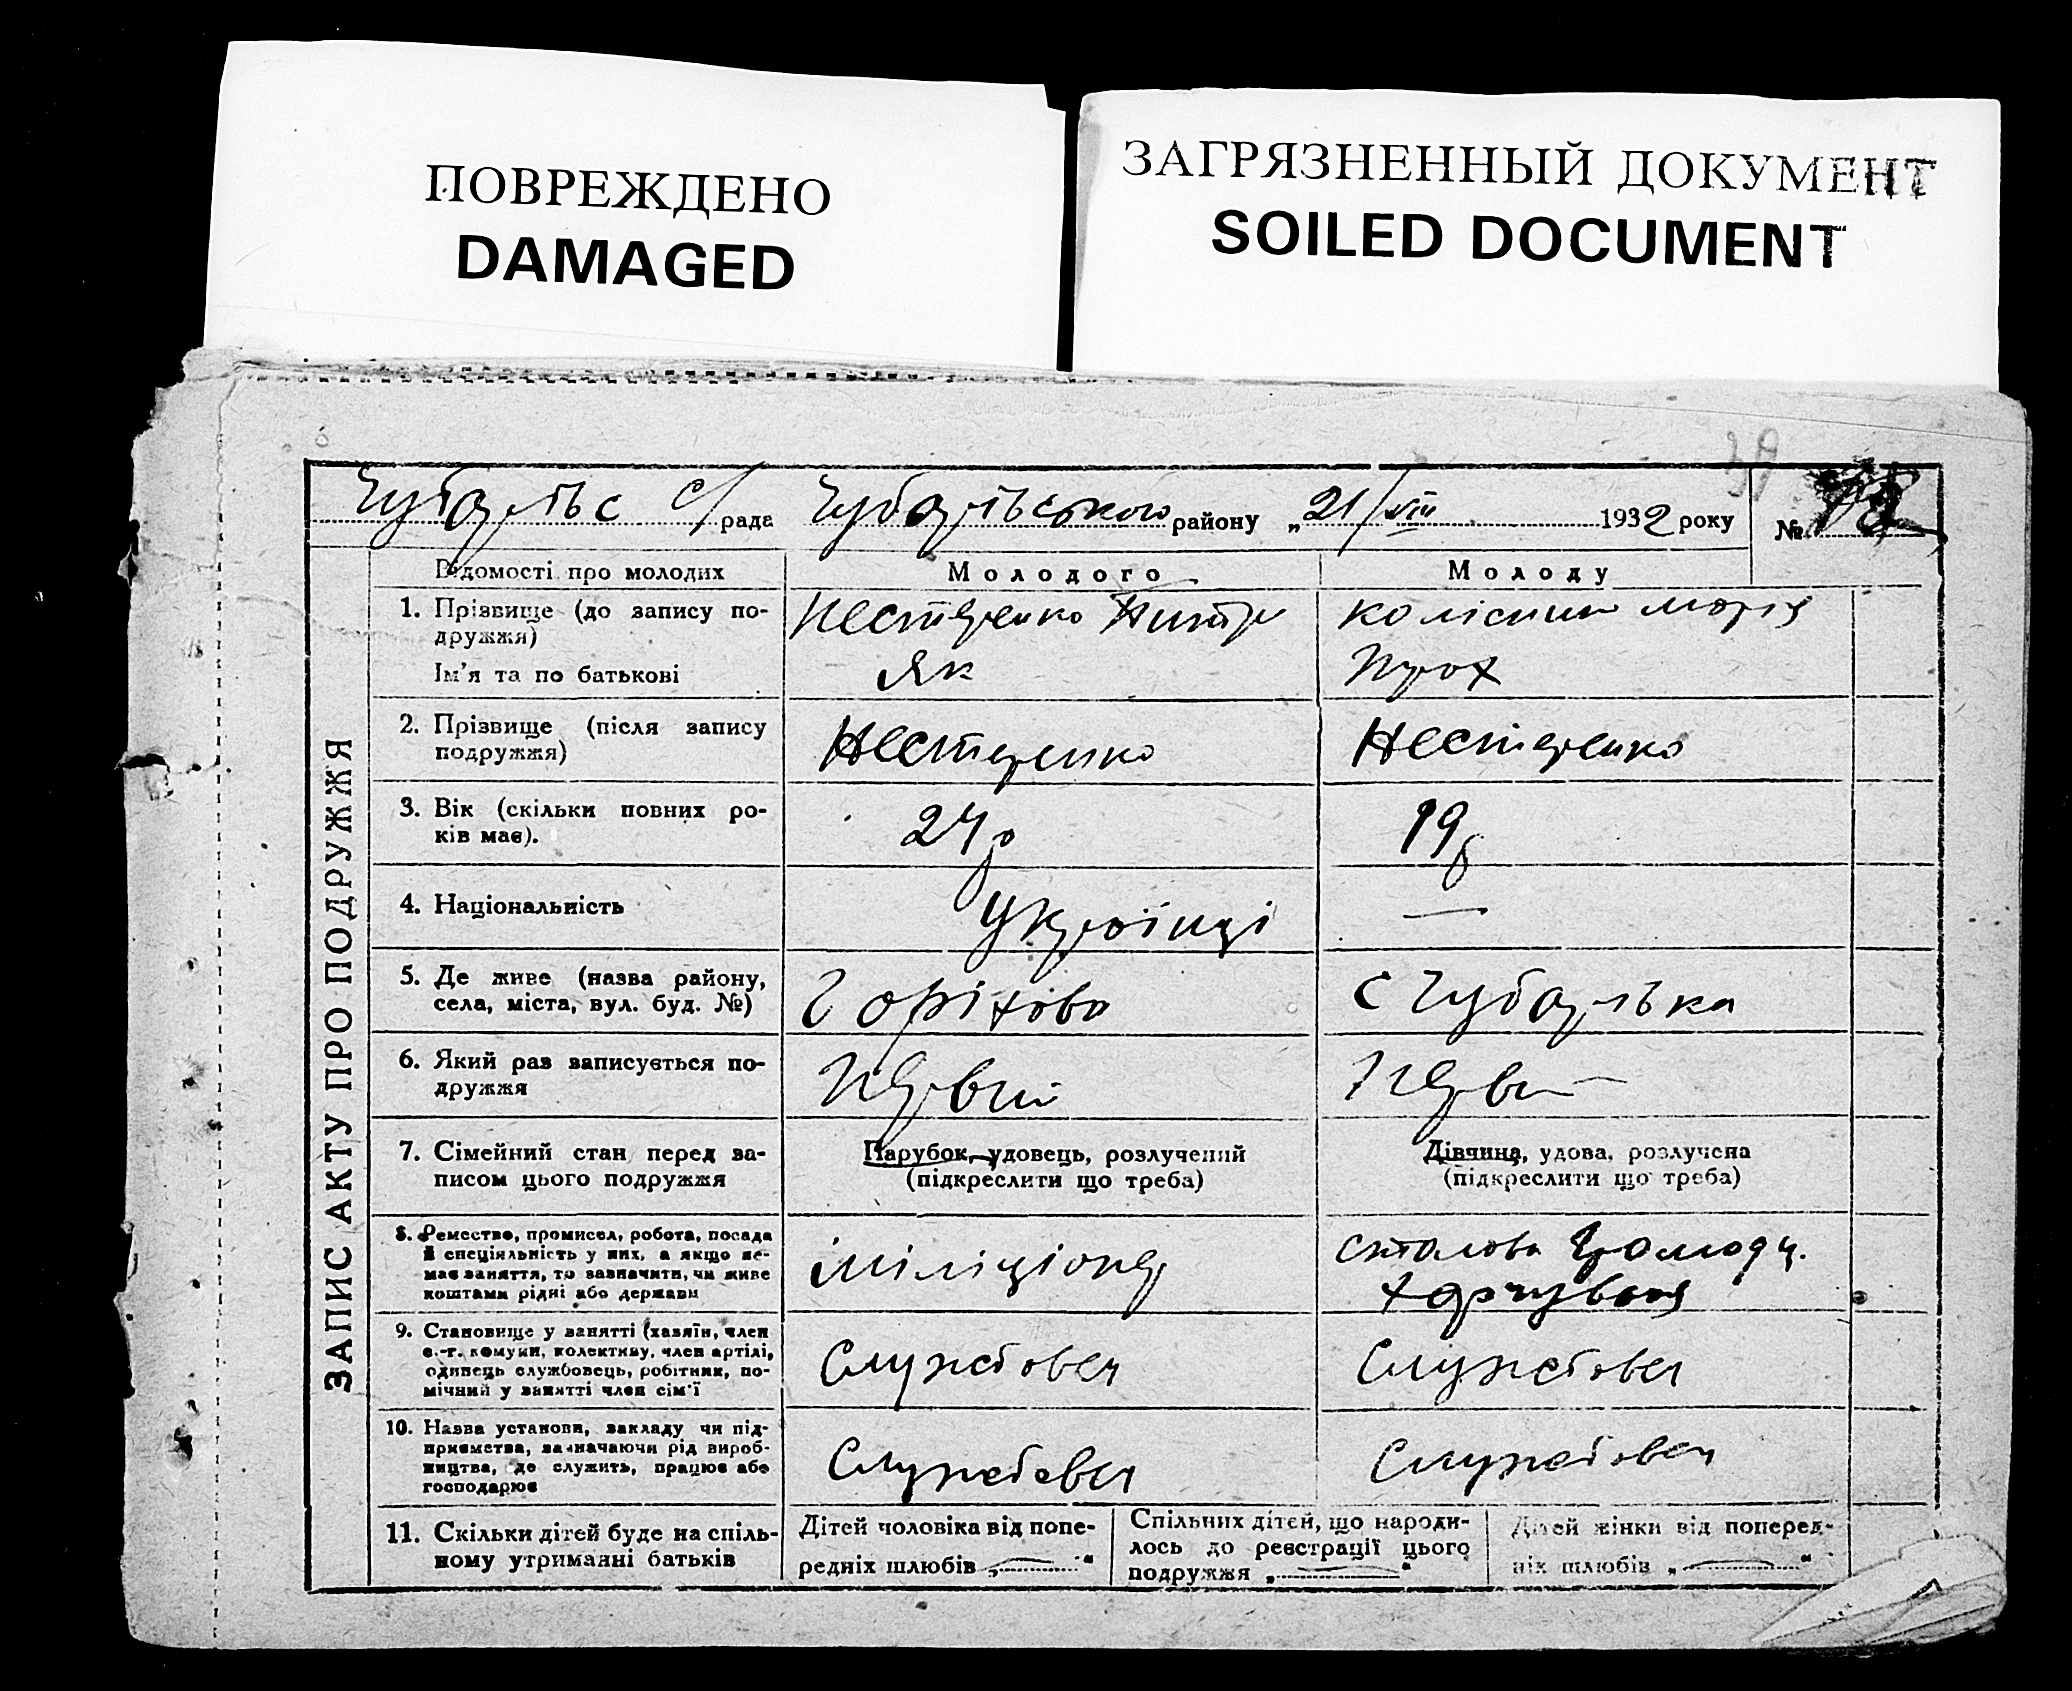 ПОВРЕЖДЕНО
DAMAGED
ЗАГРЯЗНЕННЫЙ ДОКУМЕНТ
SOILED DOCUMENT
Чубарьс с/рада Чубарьського району „21/VIII 1932 року №
ЗАПИС АКТУ ПРО ПОДРУЖЖЯ
Відомості про молодих
Молодого
Молоду
1. Прізвище (до запису по-
дружжя)
Ім'я та по батькові
Нестеренко
Як
Колісник Марія
Прох
2. Прізвище (після запису
подружжя)
Нестеренко
Нестеренко
3. Вік (скільки повних ро-
ків має).
24 р
19 р
4. Національність
Українці
—
5. Де живе (назва району,
села, міста, вул. буд. №)
Г Оріхово
с Чубарька
6. Який раз записується по-
дружжя
Первий
Перви
7. Сімейний стан перед за-
писом цього подружжя
Парубок, удовець, розлучений
(підкреслити що треба)
Дівчина, удова, розлучена
(підкреслити що треба)
8. Ремество, промисел, робота, посада
й спеціяльність у них, а якщо не-
має заняття, то зазначити, чи живе
коштами рідні або держави
міліціонер
столова Громадч.
харчування
9. Становище у занятті (хазяїн, член
с.-г. комуни, колективу, член артілі,
одинець службовець, робітник, по-
мічний у занятті член сім'ї
Службовец
Службовец
10. Назва установи, закладу чи під-
приємства, зазначаючи рід вироб-
ництва, де служить, працює або
господарює
Службовец
Службовец
11. Скільки дітей буде на спіль-
ному утриманні батьків
Дітей чоловіка від попе-
редніх шлюбів „ — “
Спільних дітей, що народи-
лось до реєстрації цього
подружжя „ — “
Дітей жінки від поперед-
ніх шлюбів „ — “